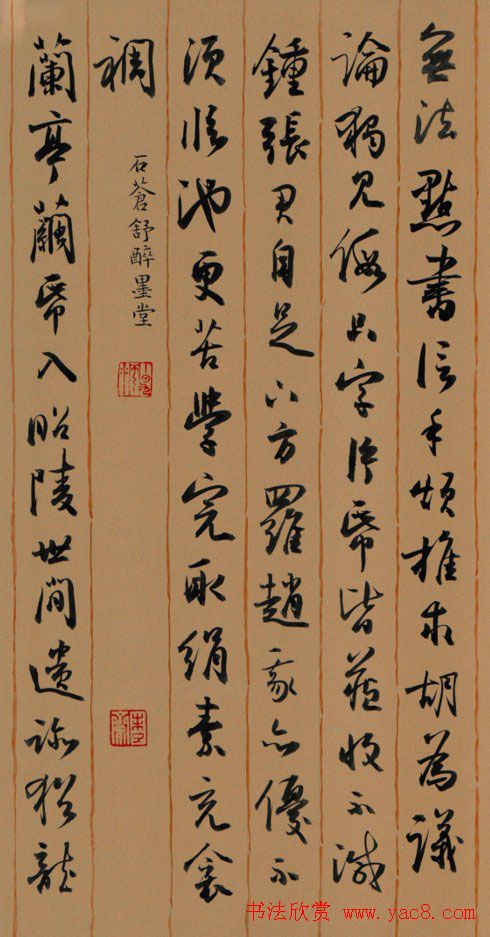 無法點畫信手煩推求胡為議
論獨見假只字片帋皆藏收不減
鍾張君自足下方羅趙我亦優不
須臨池更苦學完取絹素充衾
裯
石蒼舒醉墨堂
蘭亭繭帋入昭陵世間遺跡猶龍
书法欣赏 www.yac8.com